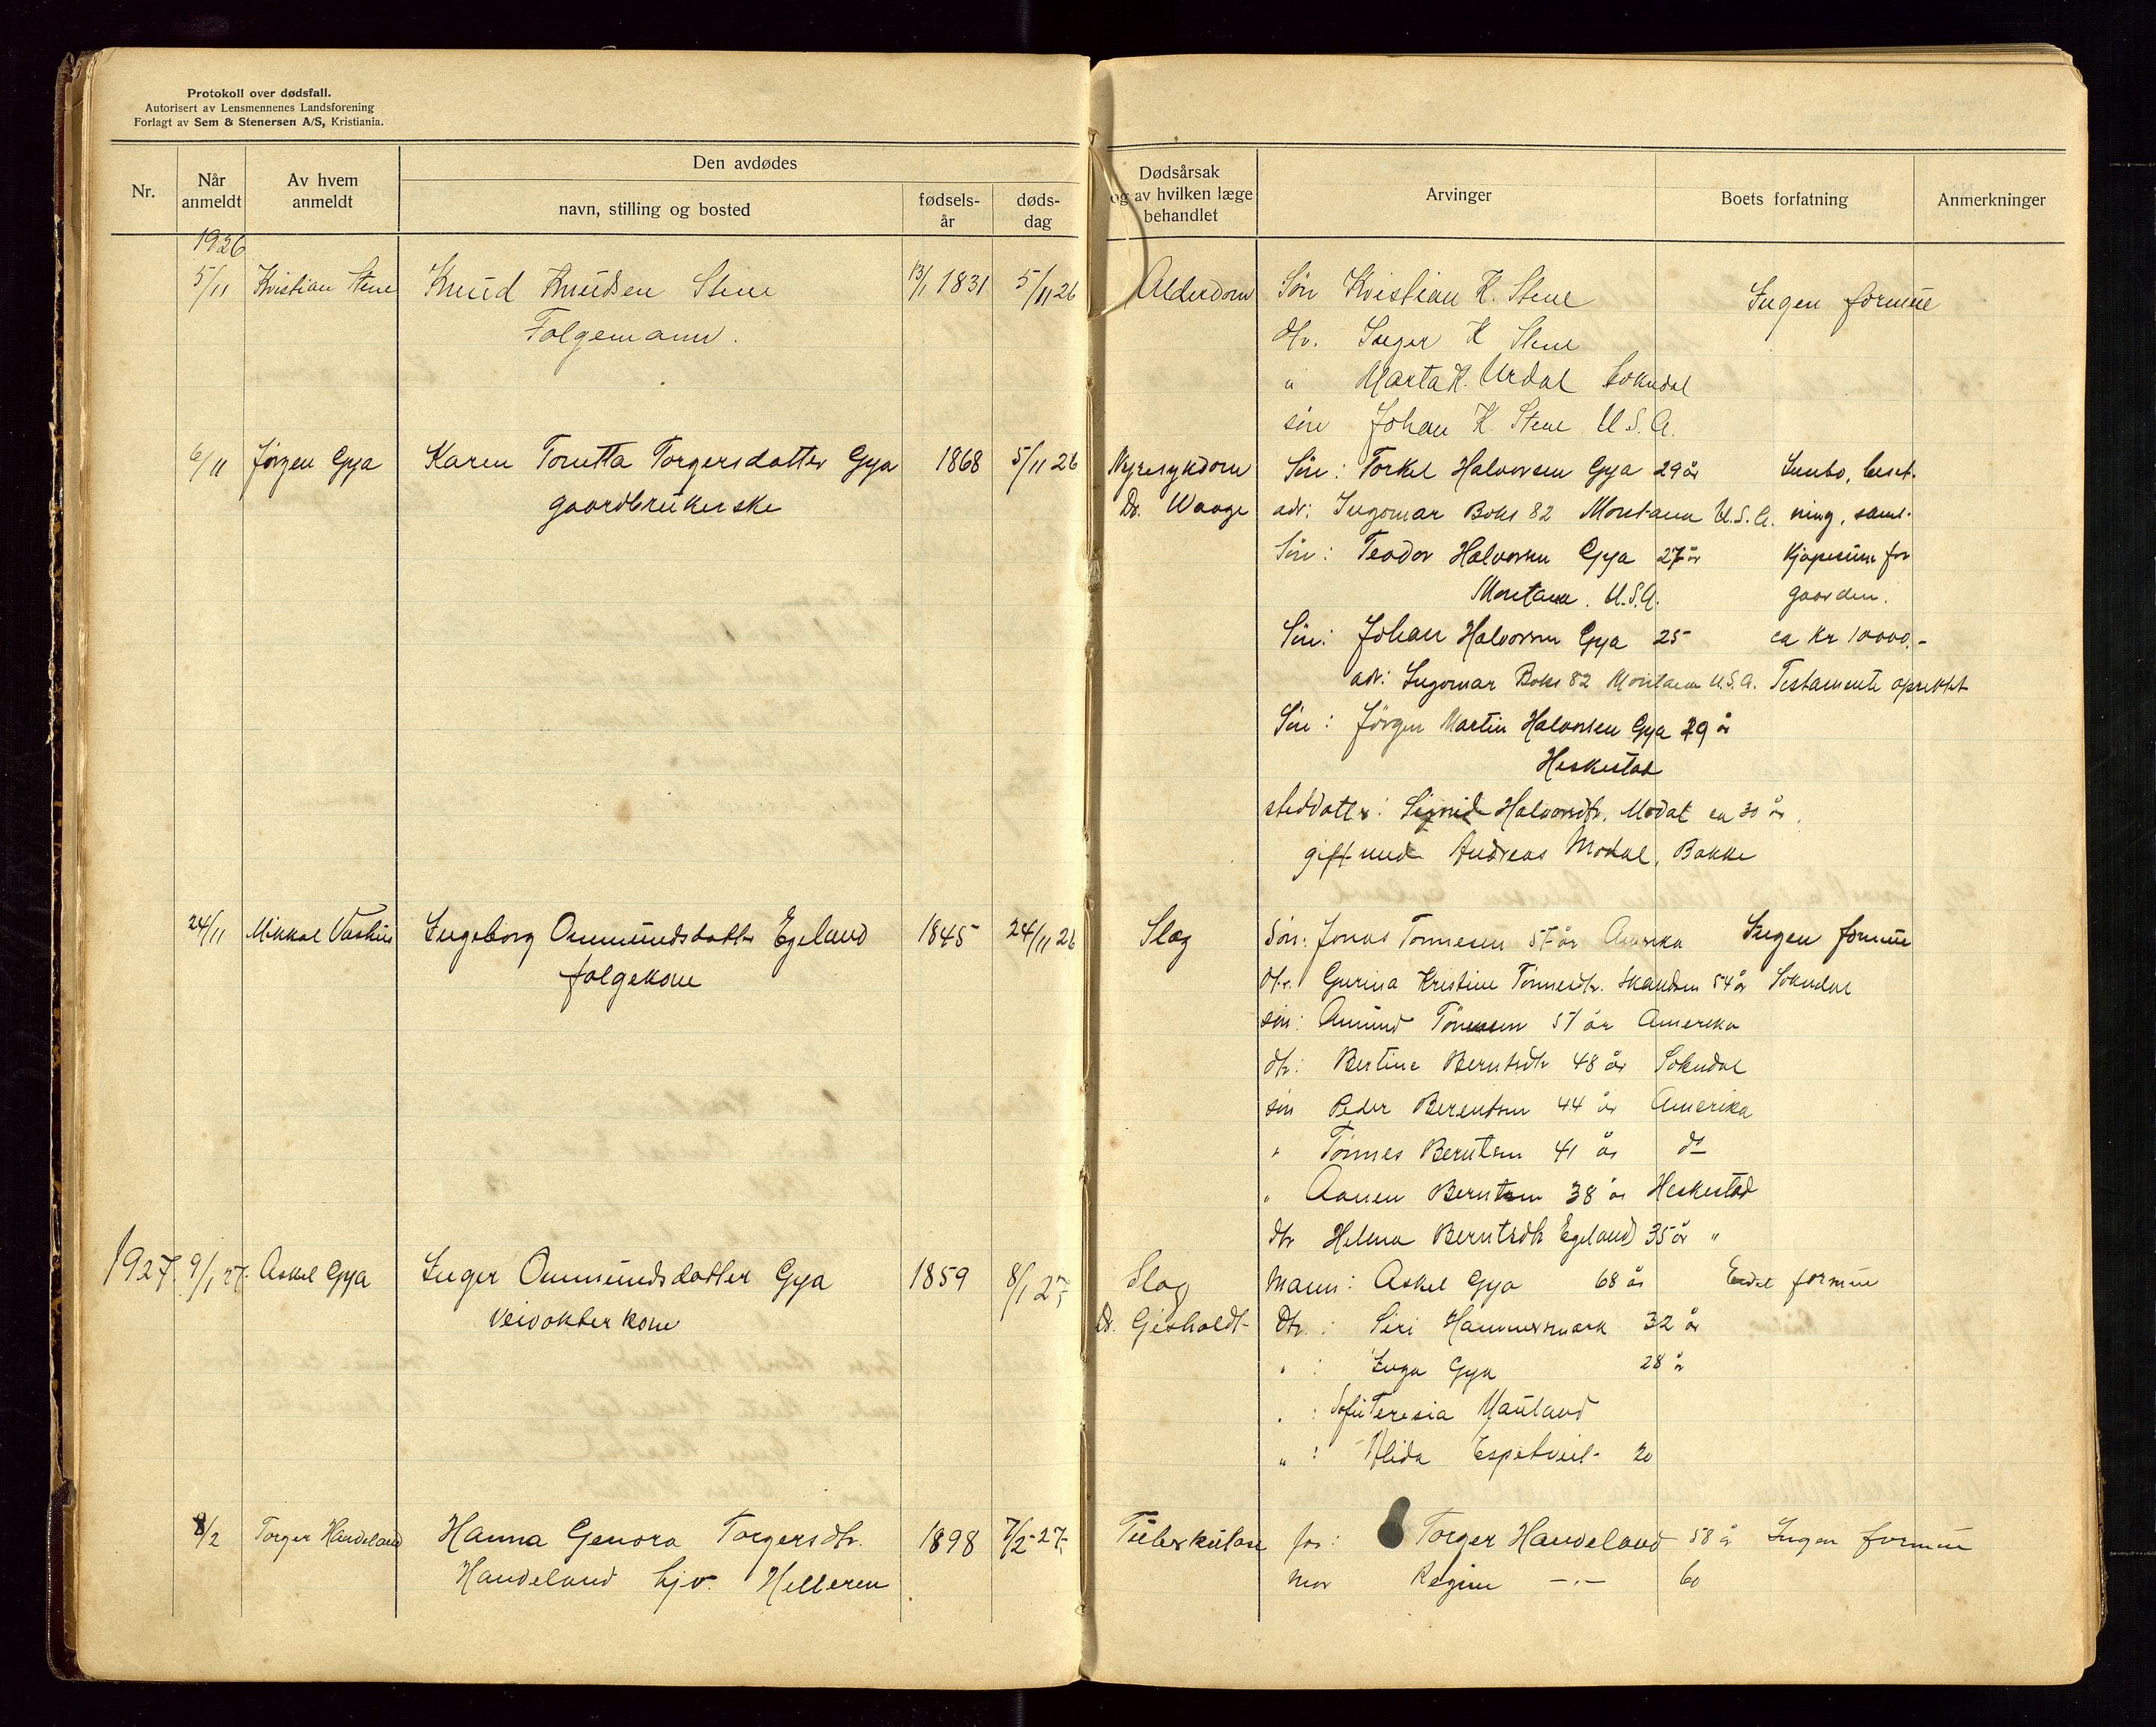 Protokoll over dødsfall.
Autorisert av Lensmennenes Landsforening
Forlagt av Sem & Stenersen A/S, Kristiania.
Nr.
Når anmeldt
Av hvem anmeldt
Den avdødes
navn, stilling og bosted
fødselsår
dødsdag
Dødsårsak og av hvilken læge behandlet
Arvinger
Boets forfatning
Anmerkninger
1926
5/11 Kristian Stene Knud Knudsen Stene 13/1 1831 5/11 26 Alderdom Søn Kristian K. Stene Ingen formue
Folgemann. dtr. Inger K Stene
" Marta K. Urdal Sokndal
søn Johan K. Stene U.S.A.
6/11 Jørgen Gya Karen Torgersdatter Gya 1868 5/11 26 Nyresykdom Søn: Torkel Halvorsen Gya 29 år Innbo, beset-
gaardbrukerske Dr. Waage adr: Ingomar Boks 82 Montana U.S.A. ning, samt
Søn: Teodor Halvorsen Gya 27 år Kjøpesum for
Montana. U.S.A. gaarden.
Søn: Johan Halvorsen Gya 25 ca Kr 10000.-
adr: Ingomar Boks 82 Montana U.S.A. Testamente oprettet
Søn: Jørgen Martin Halvorsen Gya år
Heskestad
steddatter: Sigrid Halvorsdtr. Modal ca 30 år.
gift med Andreas Modal, Bakke
24/11 Mikkal Ingeborg Ommundsdatter Egeland 1845 24/11 26 Slag Søn: Jonas Tønnesen 57 år Amerika Ingen formue
folgekone dtr. Gurina Kristine Tønnesdtr. 54 år Sokndal
søn: Amund Tønnesen 51 år Amerika
dtr: Bertine Berntsdtr 48 år Sokndal
søn Peder Berentsen 44 år Amerika
" Tønnes Berntsen 41 år do
" Aanen Berntsen 38 år Heskestad
dtr Helena Berntsdtr Egeland 35 år "
1927. 9/1 27. Askel Gya Inger Ommundsdatter Gya 1859 8/1 27. Slag Mann: Askel Gya 68 år Endel formue
veivokterkone Dr. Dtr.: Siri Hammersmark 32 år
" : Inga Gya 28 år
" : Sofie Teresia Mauland
" : Alida 20
8/2 Torger Handeland Hanna Genora Torgersdtr. 1898 7/2 27. Tuberkulose far: Torger Handeland 58 år Ingen formue
Handeland hjv. Helleren mor Regine —"— 60